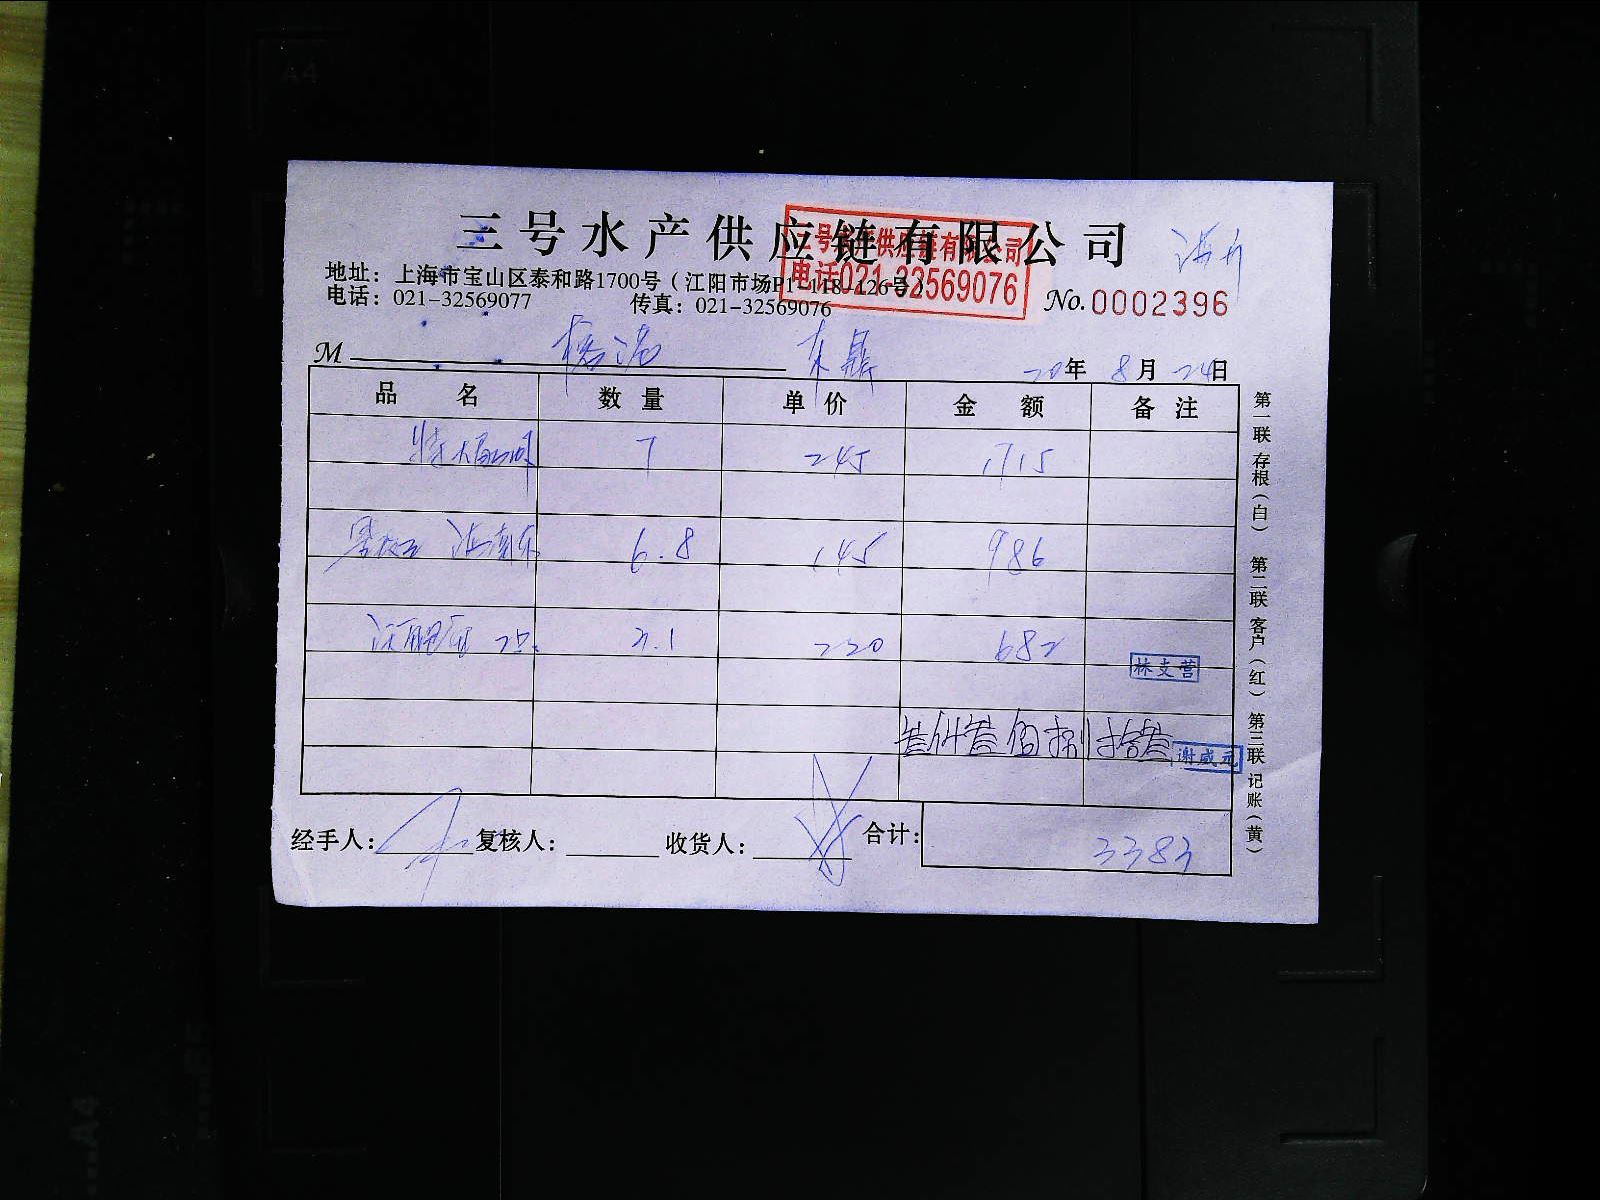 三号水产供应链有限公司
三号水产供应链有限公司
电话021-32569076
地址：上海市宝山区泰和路1700号（江阳市场P1-118-126号）
电话：021-32569077 传真：021-32569076
No.0002396
M 杨浩 东鼎 20年8月24日
品名 数量 单价 金额 备注
7 245 1715
海南东 6.8 145 986
3.1 220 682
林支营
叁仟叁佰捌拾叁
谢咸元
经手人： 复核人： 收货人： 合计： 3383
第一联 存根（白） 第二联 客户（红） 第三联 记账（黄）